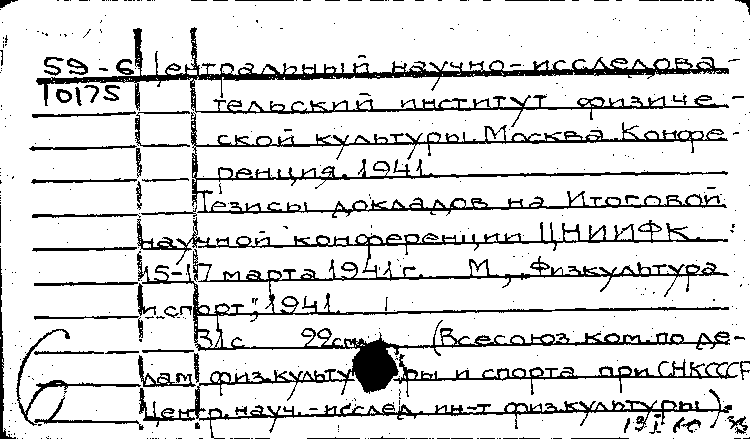 59-6 Центральный научно-исследова-
10175 тельский институт физиче-
ской культуры. Москва. Конфе-
ренция. 1941.
Тезисы докладов на Итоговой
научной конференции ЦНИИФК.
15-17 марта 1941 г. М., "Физкультура
и спорт", 1941.
31 с. 22 см. (Всесоюз. ком. по де-
лам физ. культуры и спорта при СНК СССР
Центр. науч.-исслед. ин-т физ. культуры).
6